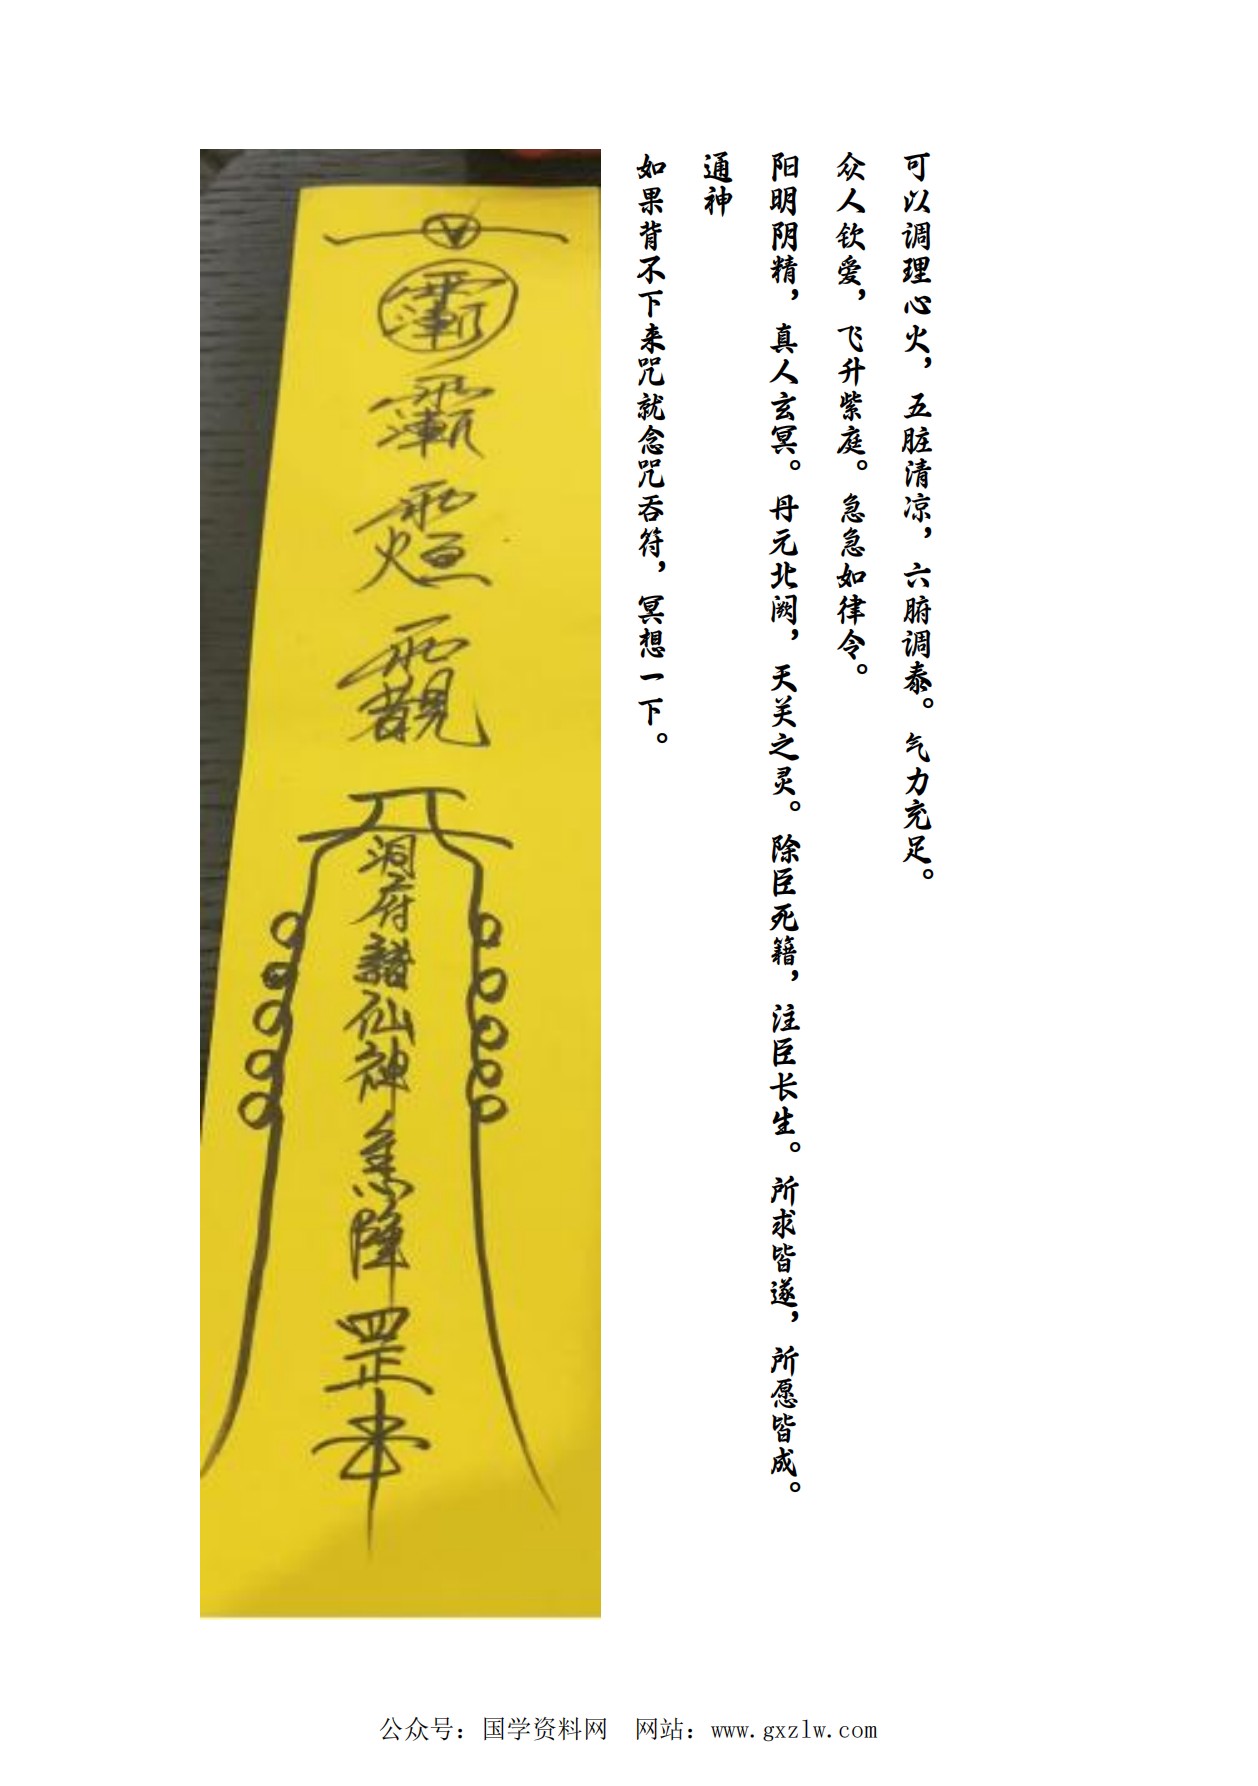 可以调理心火，五脏清凉，六腑调泰。气力充足。
众人钦爱，飞升紫庭。急急如律令。
阳明阴精，真人玄冥。丹元北阙，天关之灵。除臣死籍，注臣长生。所求皆遂，所愿皆成。
通神
如果背不下来咒就念咒吞符，冥想一下。
洞府諸仙神焦降
罡
公众号：国学资料网 网站：www.gxzlw.com